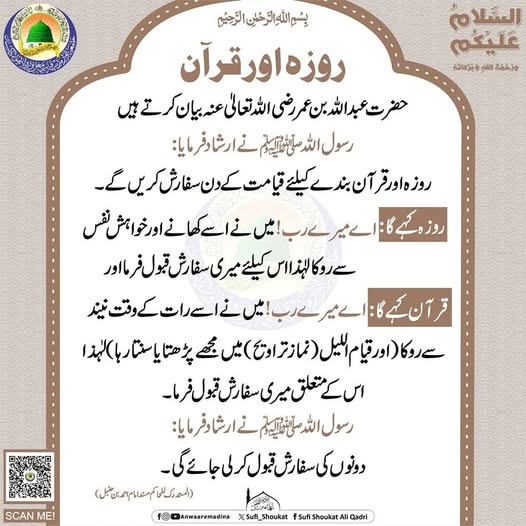 بِسْمِ اللهِ الرَّحْمٰنِ الرَّحِيْمِ
السَّلامُ
عَلَيْكُم
وَرَحْمَةُ اللهِ وَبَرَكَاتُهُ
روزہ اور قرآن
حضرت عبداللہ بن عمر رضی اللہ تعالیٰ عنہ بیان کرتے ہیں
رسول اللہ ﷺ نے ارشاد فرمایا:
روزہ اور قرآن بندے کیلئے قیامت کے دن سفارش کریں گے۔
روزہ کہے گا: اے میرے رب! میں نے اسے کھانے اور خواہش نفس
سے روکا لہٰذا اس کیلئے میری سفارش قبول فرما اور
قرآن کہے گا: اے میرے رب! میں نے اسے رات کے وقت نیند
سے روکا (اور قیام اللیل (نماز تراویح) میں مجھے پڑھتا یا سنتا رہا) لہٰذا
اس کے متعلق میری سفارش قبول فرما۔
رسول اللہ ﷺ نے ارشاد فرمایا:
دونوں کی سفارش قبول کر لی جائے گی۔
(المستدرک للحاکم مسند امام احمد بن حنبل)
SCAN ME!
Anwaaremadina
Sufi_Shoukat
Sufi Shoukat Ali Qadri